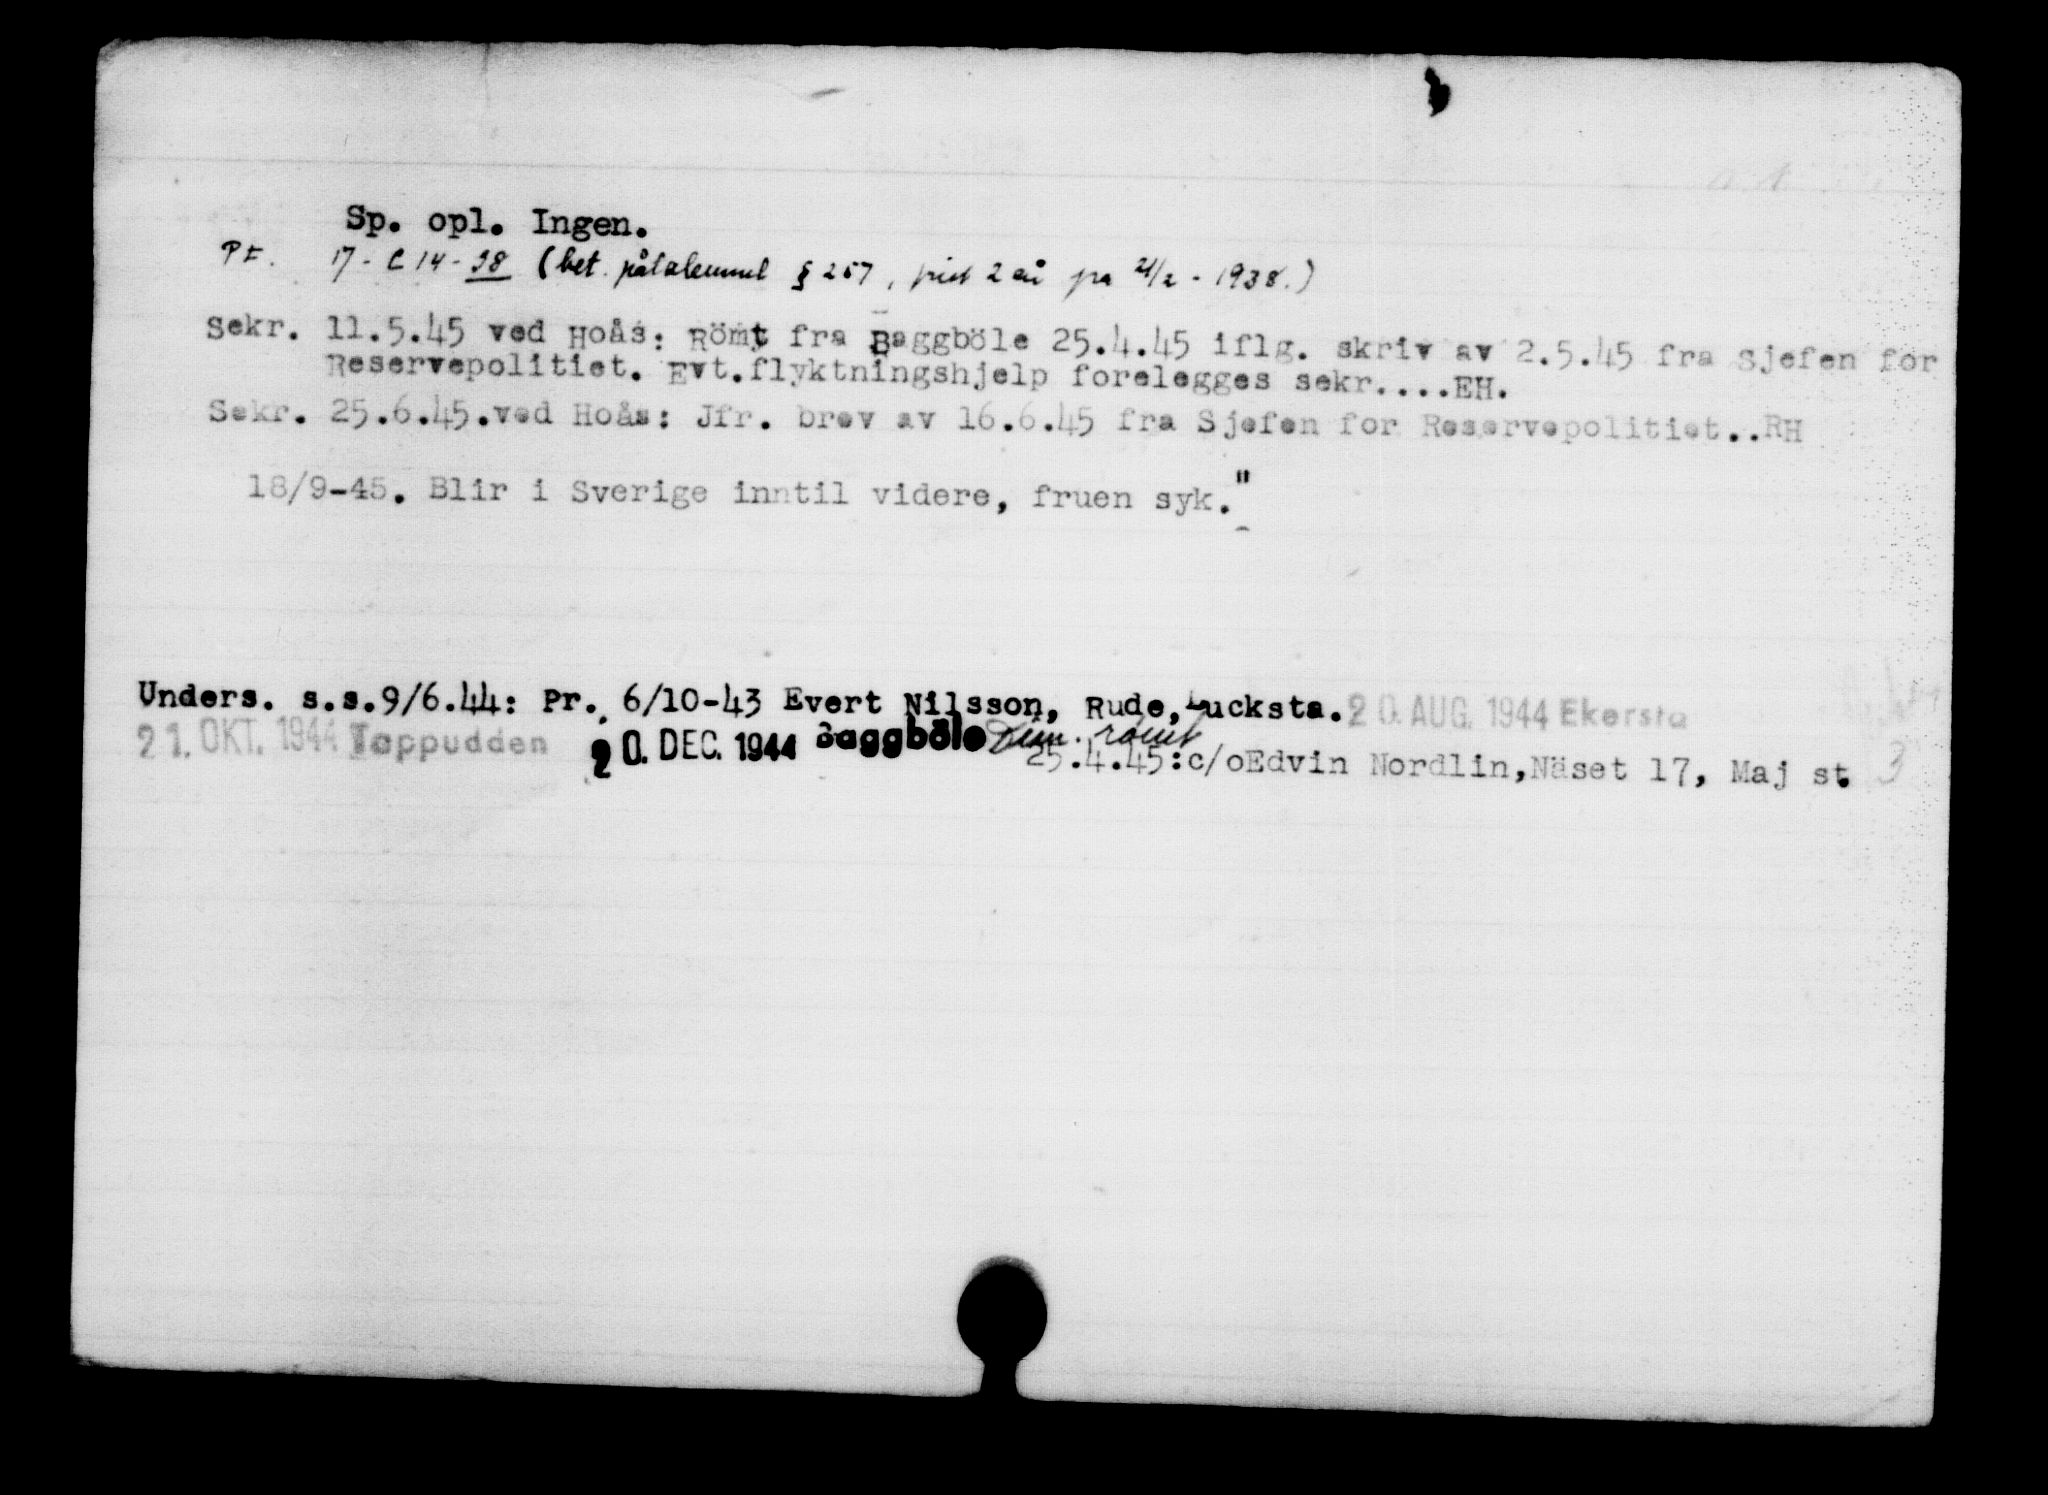 Sp. opl. Ingen.
PE. 17 - C 14 - 38 (bet. påtaleunnl § 257, 2 år fra 21/2 - 1938.)
Sekr. 11.5.45 ved Hoås: Römt fra Baggböle 25.4.45 iflg. skriv av 2.5.45 fra Sjefen for
Reservepolitiet. Evt.flyktningshjelp forelegges sekr....EH.
Sekr. 25.6.45.ved Hoås: Jfr. brev av 16.6.45 fra Sjefen for Reservepolitiet..RH
18/9-45. Blir i Sverige inntil videre, fruen syk."
Unders. s.s.9/6.44: Pr. 6/10-43 Evert Nilsson, Rude, Lucksta. 20. AUG. 1944 Ekersta
21. OKT. 1944 Tappudden 20. DEC. 1944 Baggböle Dim. römt
25.4.45:c/oEdvin Nordlin,Näset 17, Maj st. 3